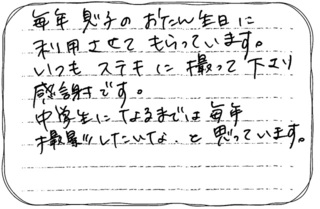 毎年 息子の おたん生日に
利用させて もらっています。
いつも ステキに 撮って 下さり
感謝です。
中学生に なるまでは 毎年
撮影したいな、と 思っています。